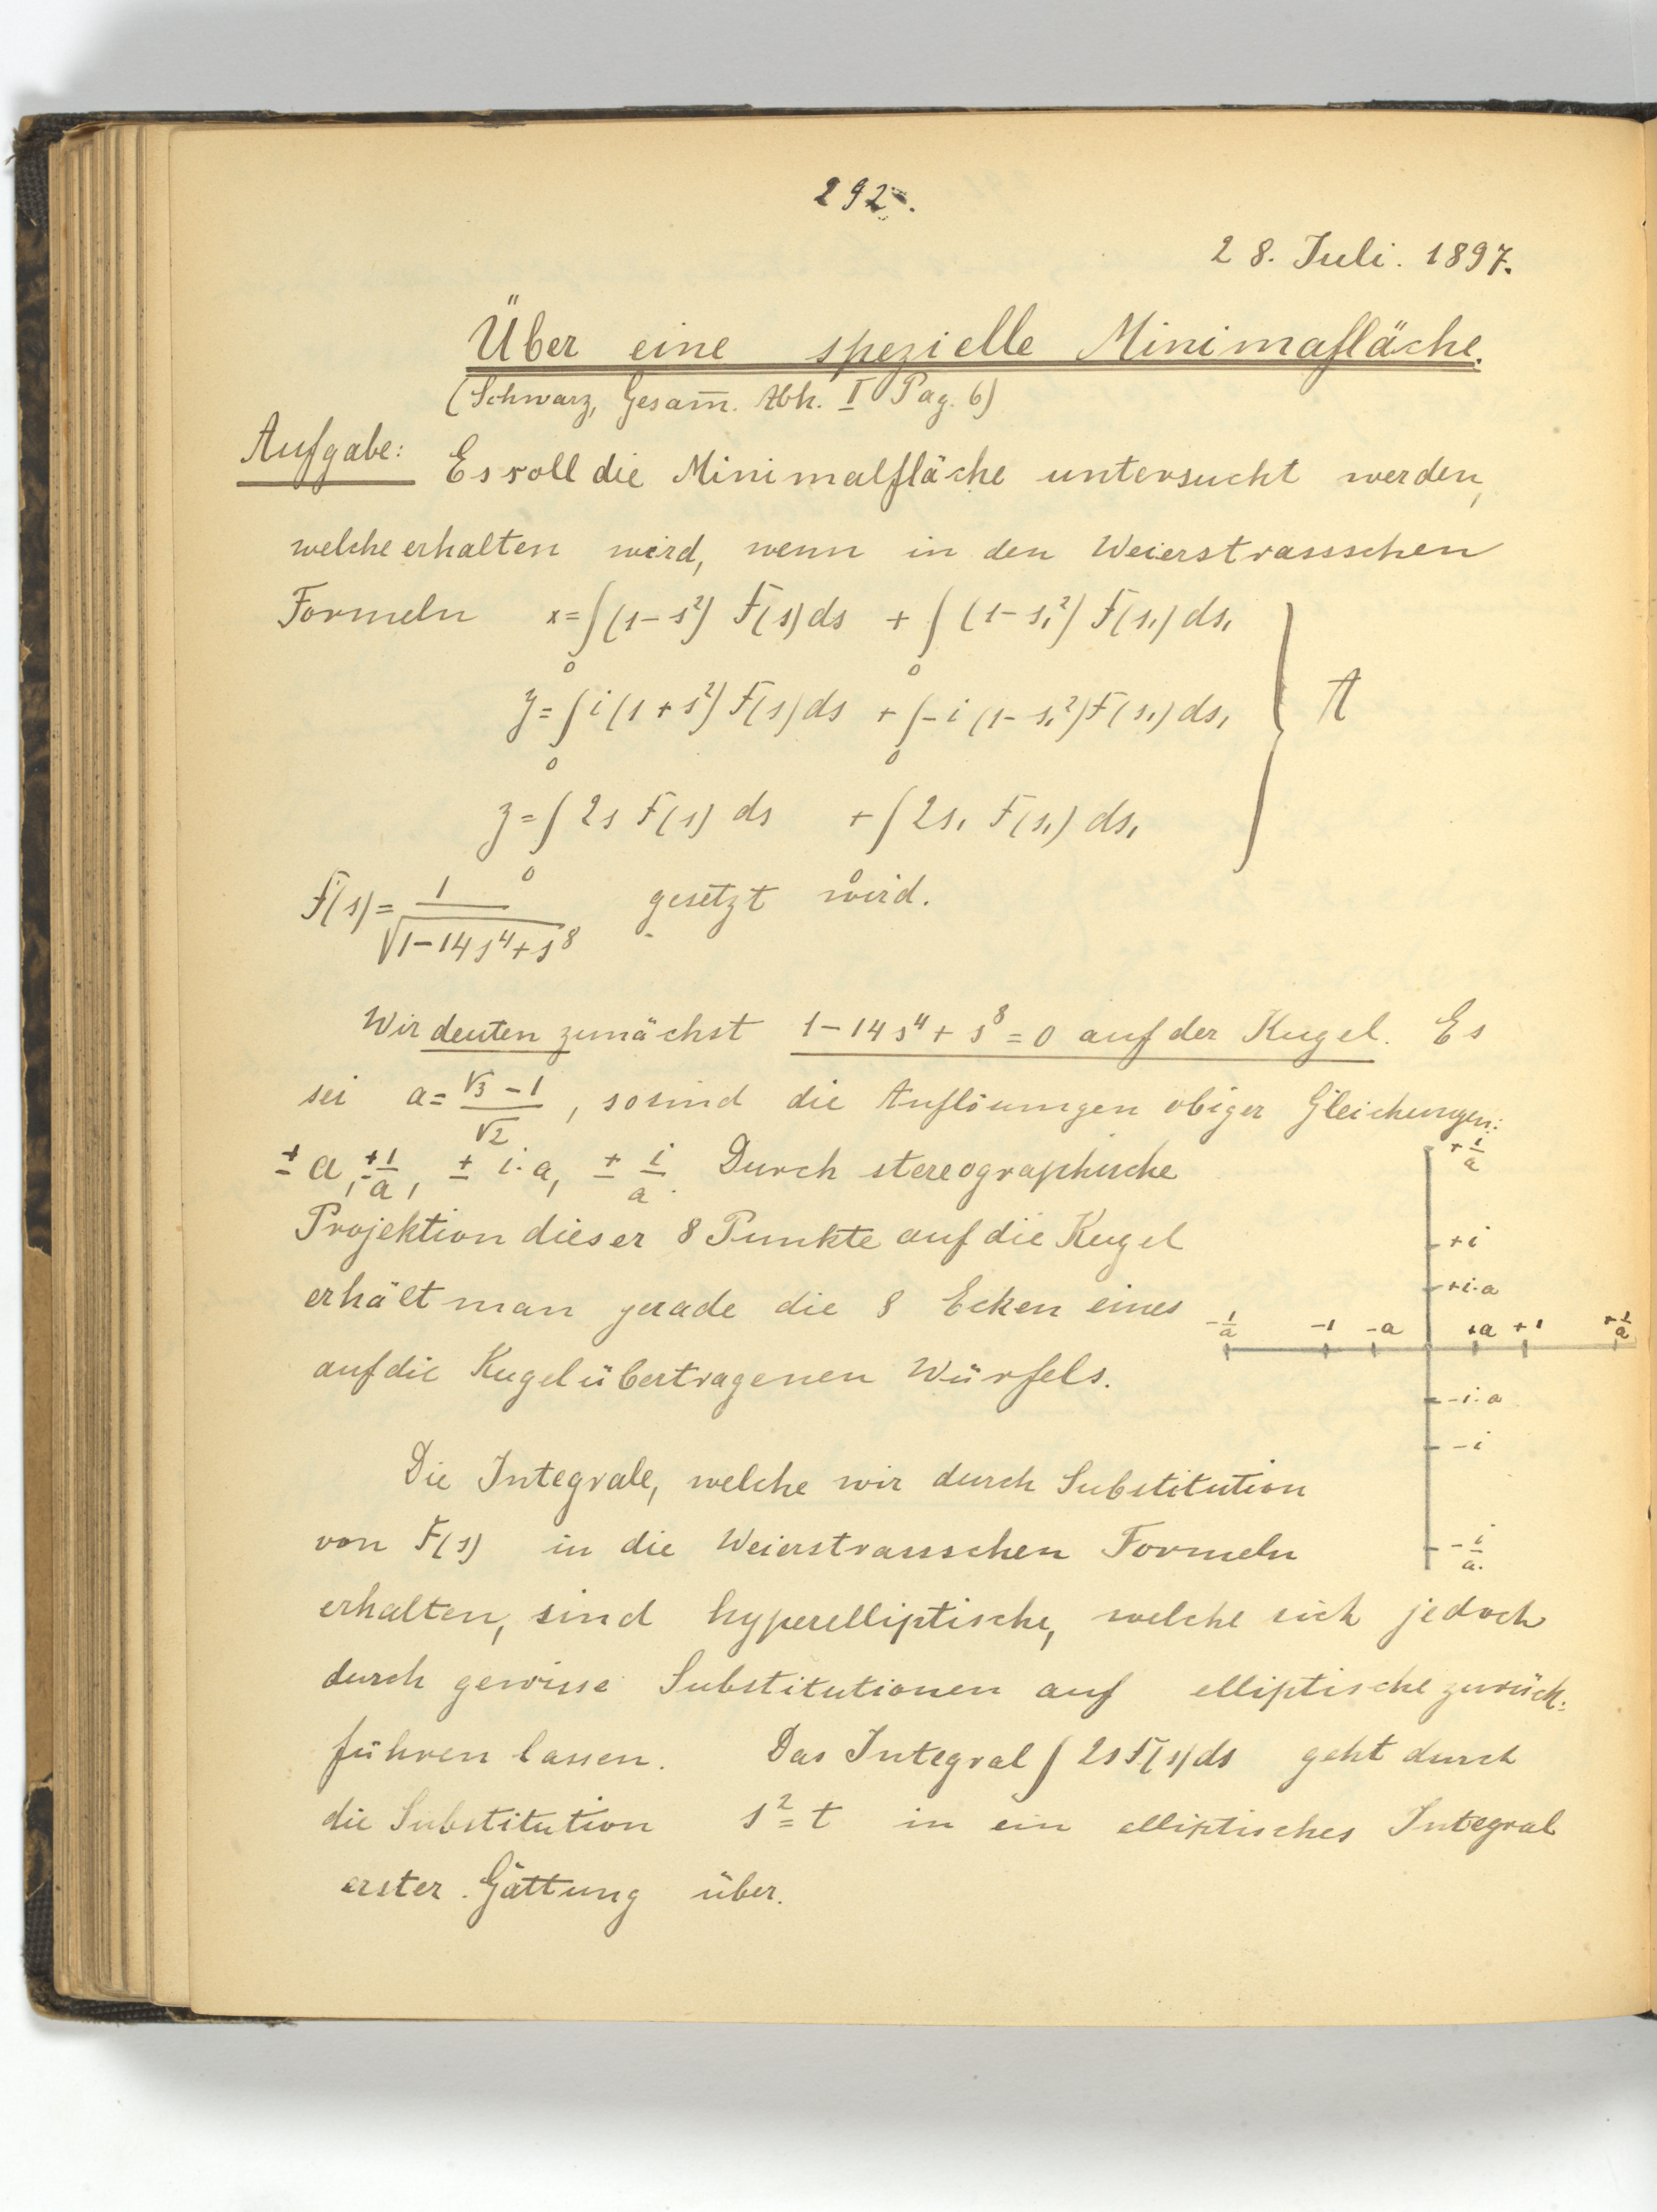 292.
28. Juli. 1897.
Über eine spezielle Minimafläche.
(Schwarz, Gesam̅. Abh. I Pag. 6)
Aufgabe: Es soll die Minimalfläche untersucht werden,
welche erhalten wird, wenn in den Weierstrassschen
Formeln x=∫₀(1-s²) F(s)ds + ∫₀(1-s₁²) F(s₁)ds₁
y=∫₀i(1+s²)F(s)ds + ∫₀-i(1-s₁²)F(s₁)ds₁ } A
z=∫₀2s F(s) ds + ∫₀2s₁ F(s₁) ds₁
F(s)= 1/√(1-14s⁴+s⁸) gesetzt wird.
Wir deuten zunächst 1-14s⁴+s⁸=0 auf der Kugel. Es
sei a= (√3-1)/√2, so sind die Auflösungen obiger Gleichungen:
± a, ± 1/a, ± i·a, ± i/a. Durch stereographische
Projektion dieser 8 Punkte auf die Kugel
erhält man gerade die 8 Ecken eines
auf die Kugel übertragenen Würfels.
+ i/a
+i
+i·a
-1/a -1 -a +a +1 +1/a
-i·a
-i
-i/a.
Die Integrale, welche wir durch Substitution
von F(s) in die Weierstrassschen Formeln
erhalten, sind hyperelliptische, welche sich jedoch
durch gewisse Substitutionen auf elliptische zurück-
führen lassen. Das Integral ∫2sF(s)ds geht durch
die Substitution s²=t in ein elliptisches Integral
erster Gattung über.